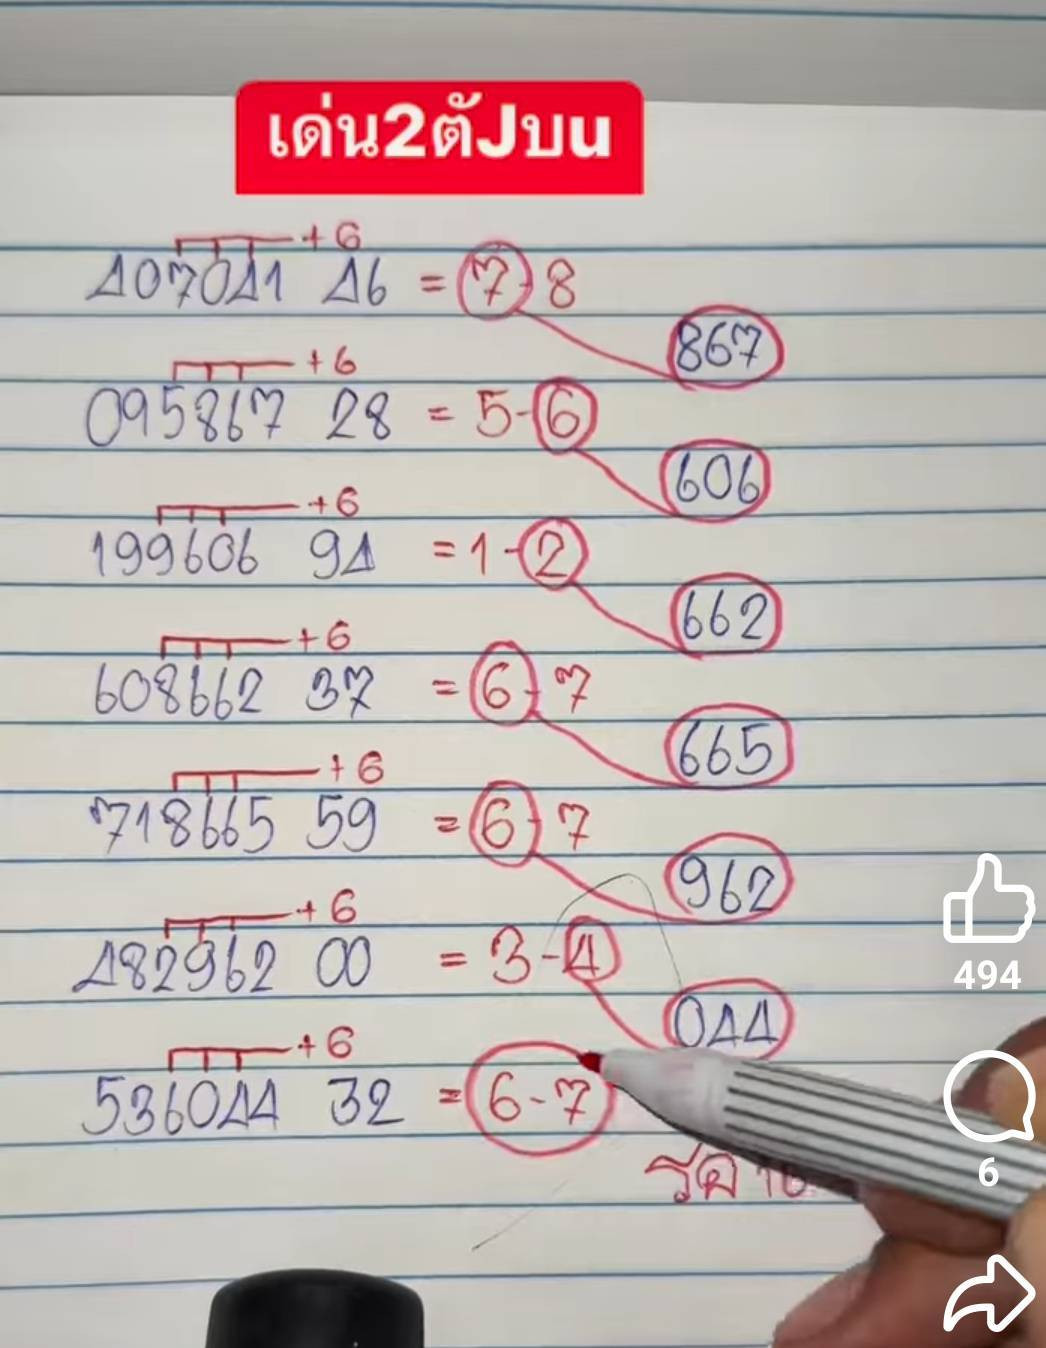 เด่น2ตัJบu
+6
407041 46 = 7-8
867
+6
095867 28 = 5-6
606
+6
199606 94 = 1-2
662
+6
608662 37 = 6-7
665
+6
718665 59 = 6-7
962
+6
482962 00 = 3-4
044
+6
536044 32 = 6-7
494
6